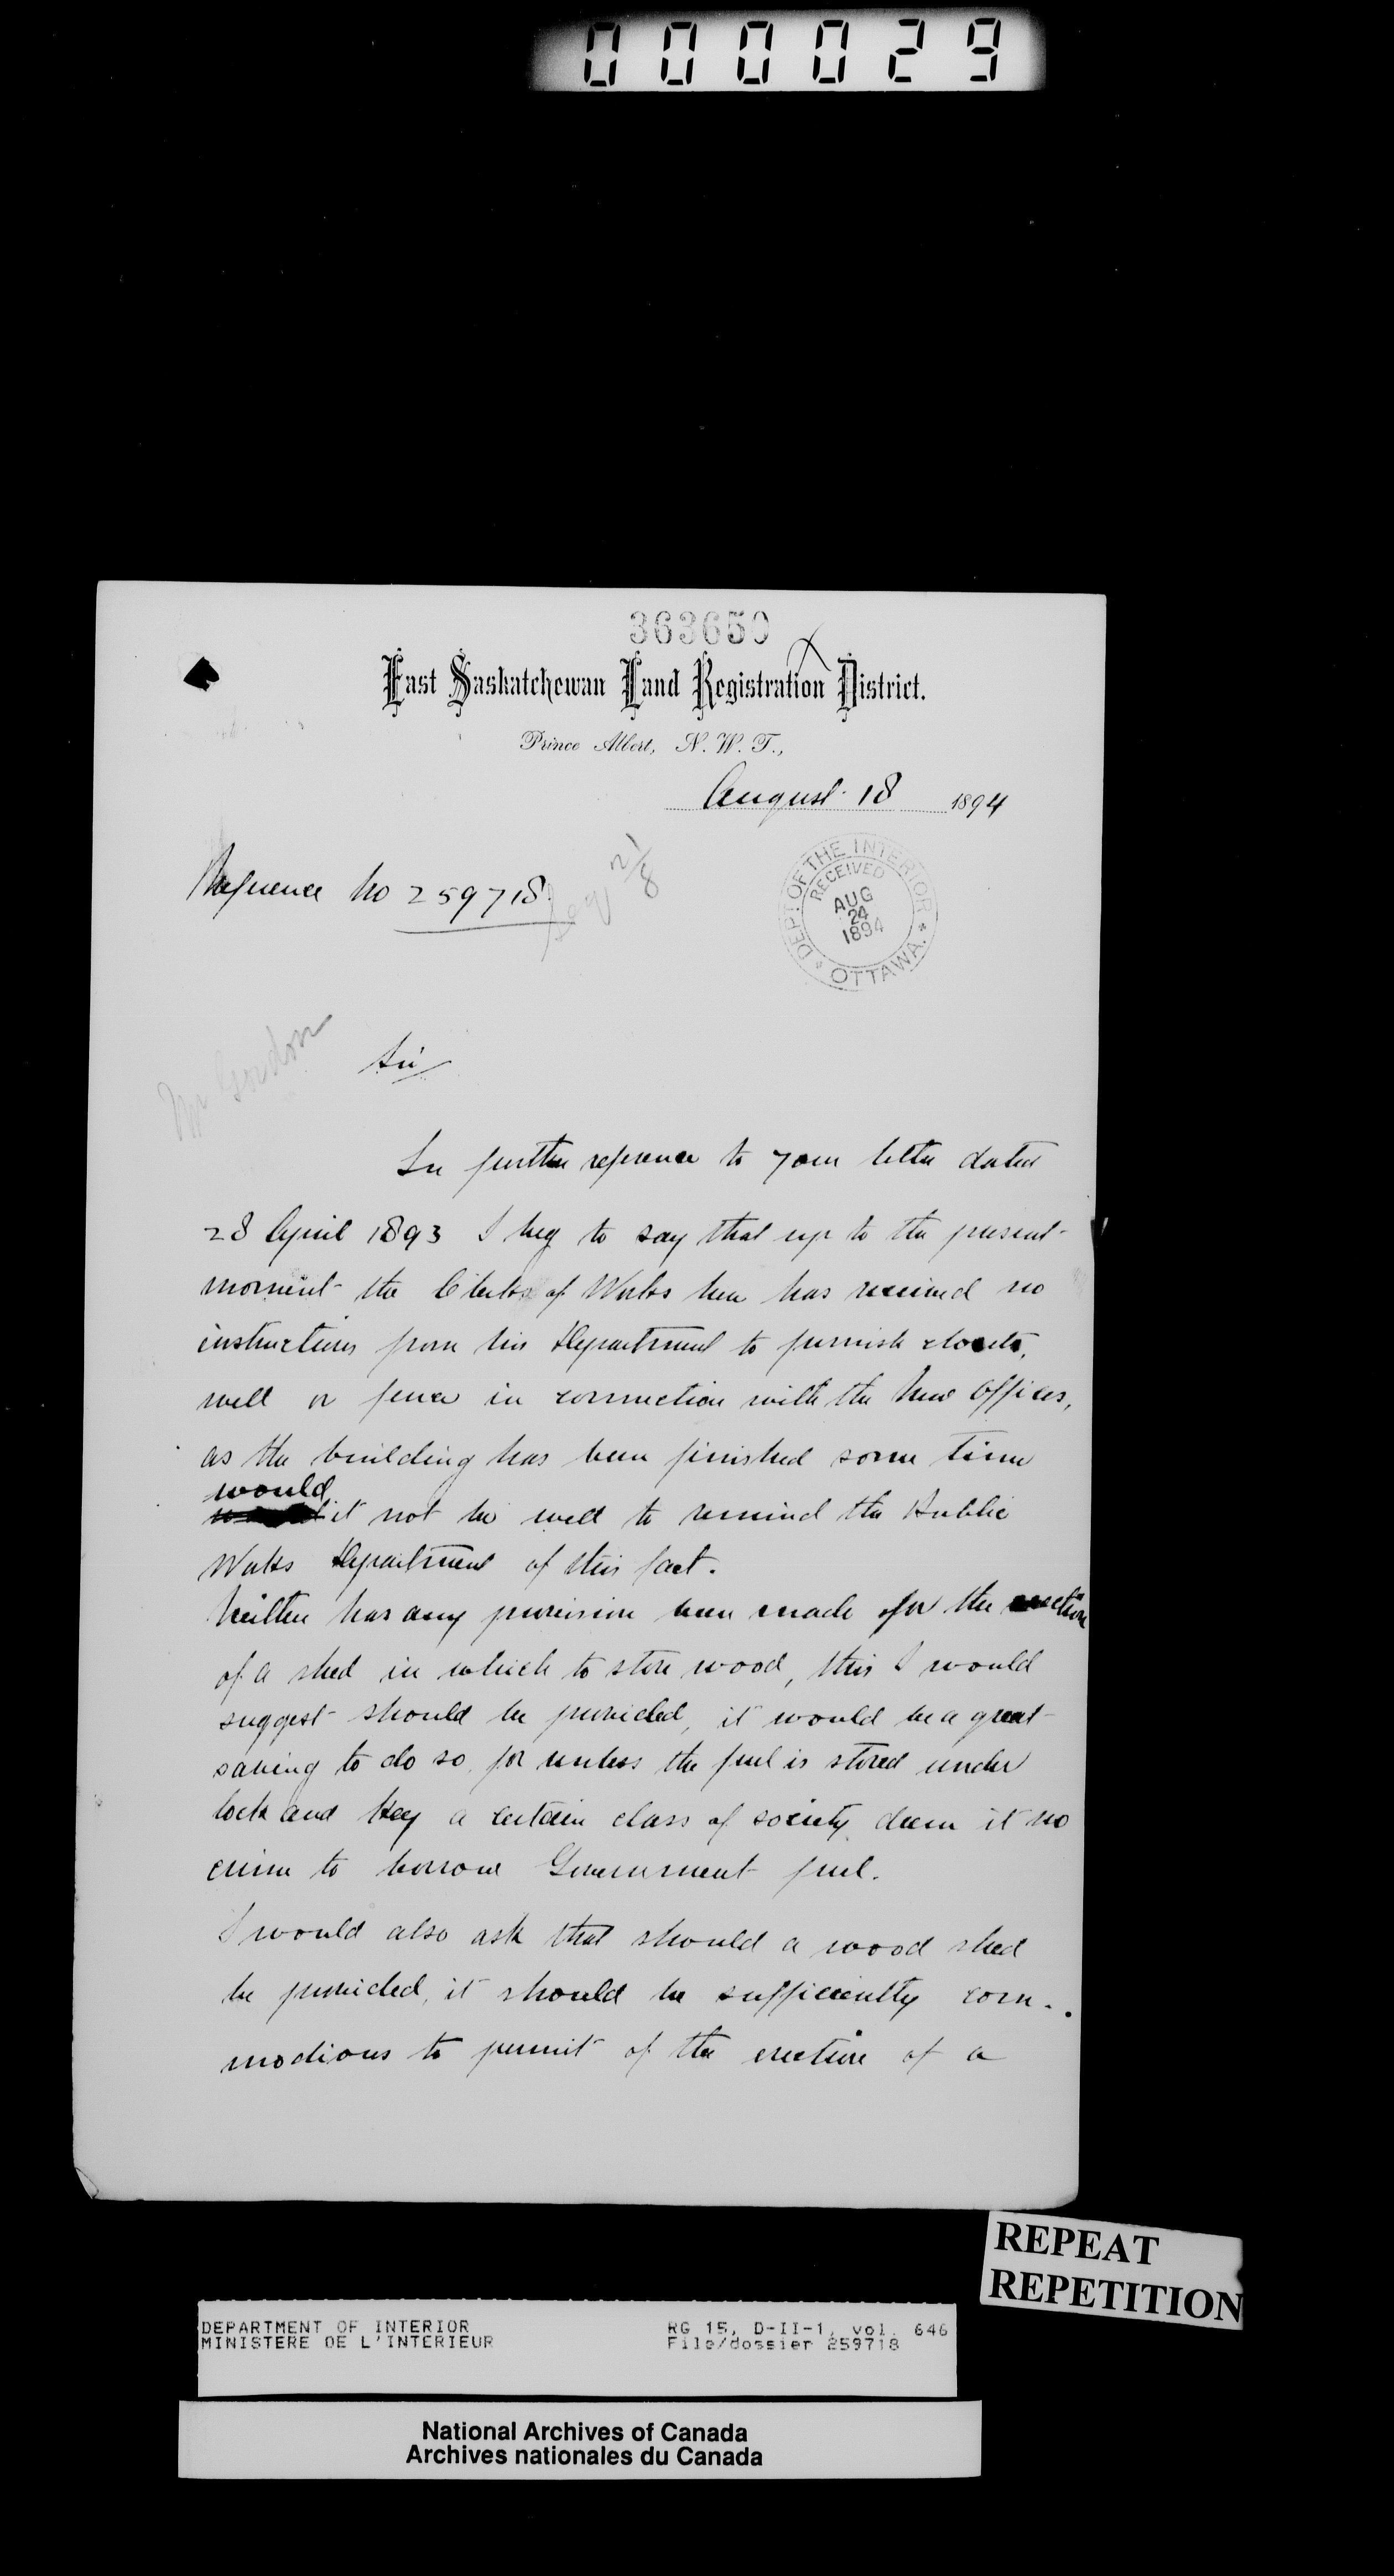 000029
363650
East Saskatchewan Land Registration District.
Prince Albert, N. W. T.,
August 18 1894
Reference No 259718.
21/8
DEPT. OF THE INTERIOR
RECEIVED
AUG
24
1894
OTTAWA.
Mr Gordon
Sir
In further reference to your letter dated
28 April 1893 I beg to say that up to the present
moment the Clerk of Works here has received no
instructions from his Department to furnish closets,
well or fence in connection with the New Offices,
as the building has been finished some time
would
it not be well to remind the Public
Works Department of this fact.
Neither has any provision been made for the erection
of a shed in which to store wood, this I would
suggest should be provided, it would be a great
saving to do so, for unless the fuel is stored under
lock and key a certain class of society deem it no
crime to borrow Government fuel.
I would also ask that should a wood shed
be provided, it should be sufficiently com-
modious to permit of the erection of a
REPEAT
REPETITION
DEPARTMENT OF INTERIOR
MINISTERE DE L'INTERIEUR
RG 15, D-II-1, vol. 646
File/dossier 259718
National Archives of Canada
Archives nationales du Canada